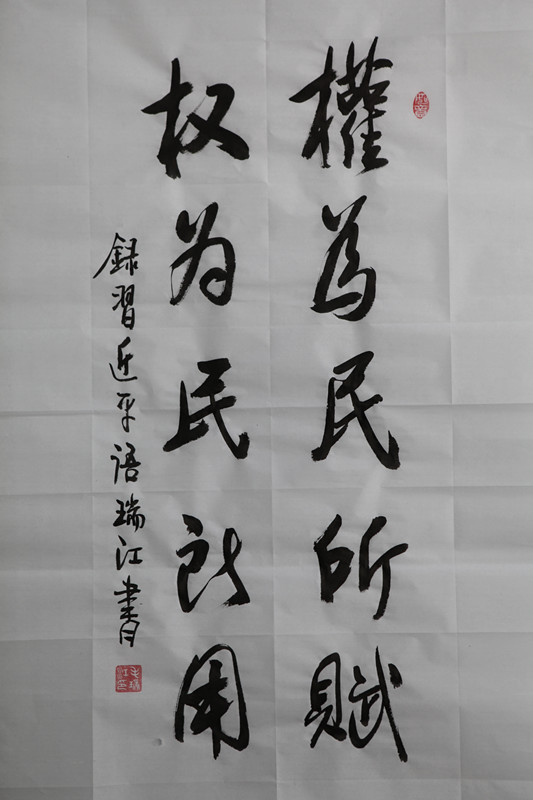 權為民所賦
权为民所用
録習近平语瑞江書